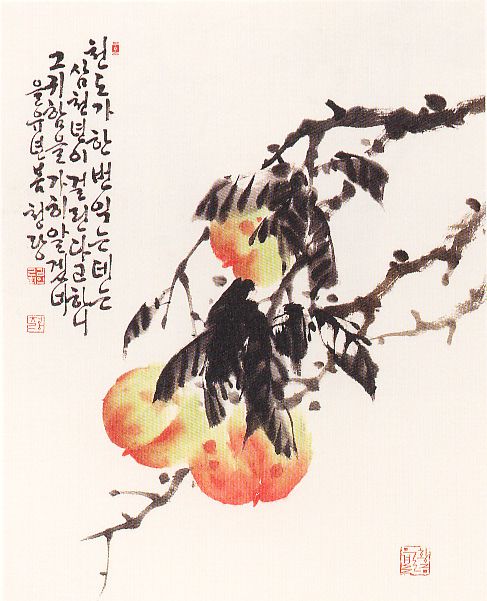 천도가 한번 익는데는
삼천년이 걸린다고 하니
그 귀함을 가히 알겠네
을유년 봄 청당